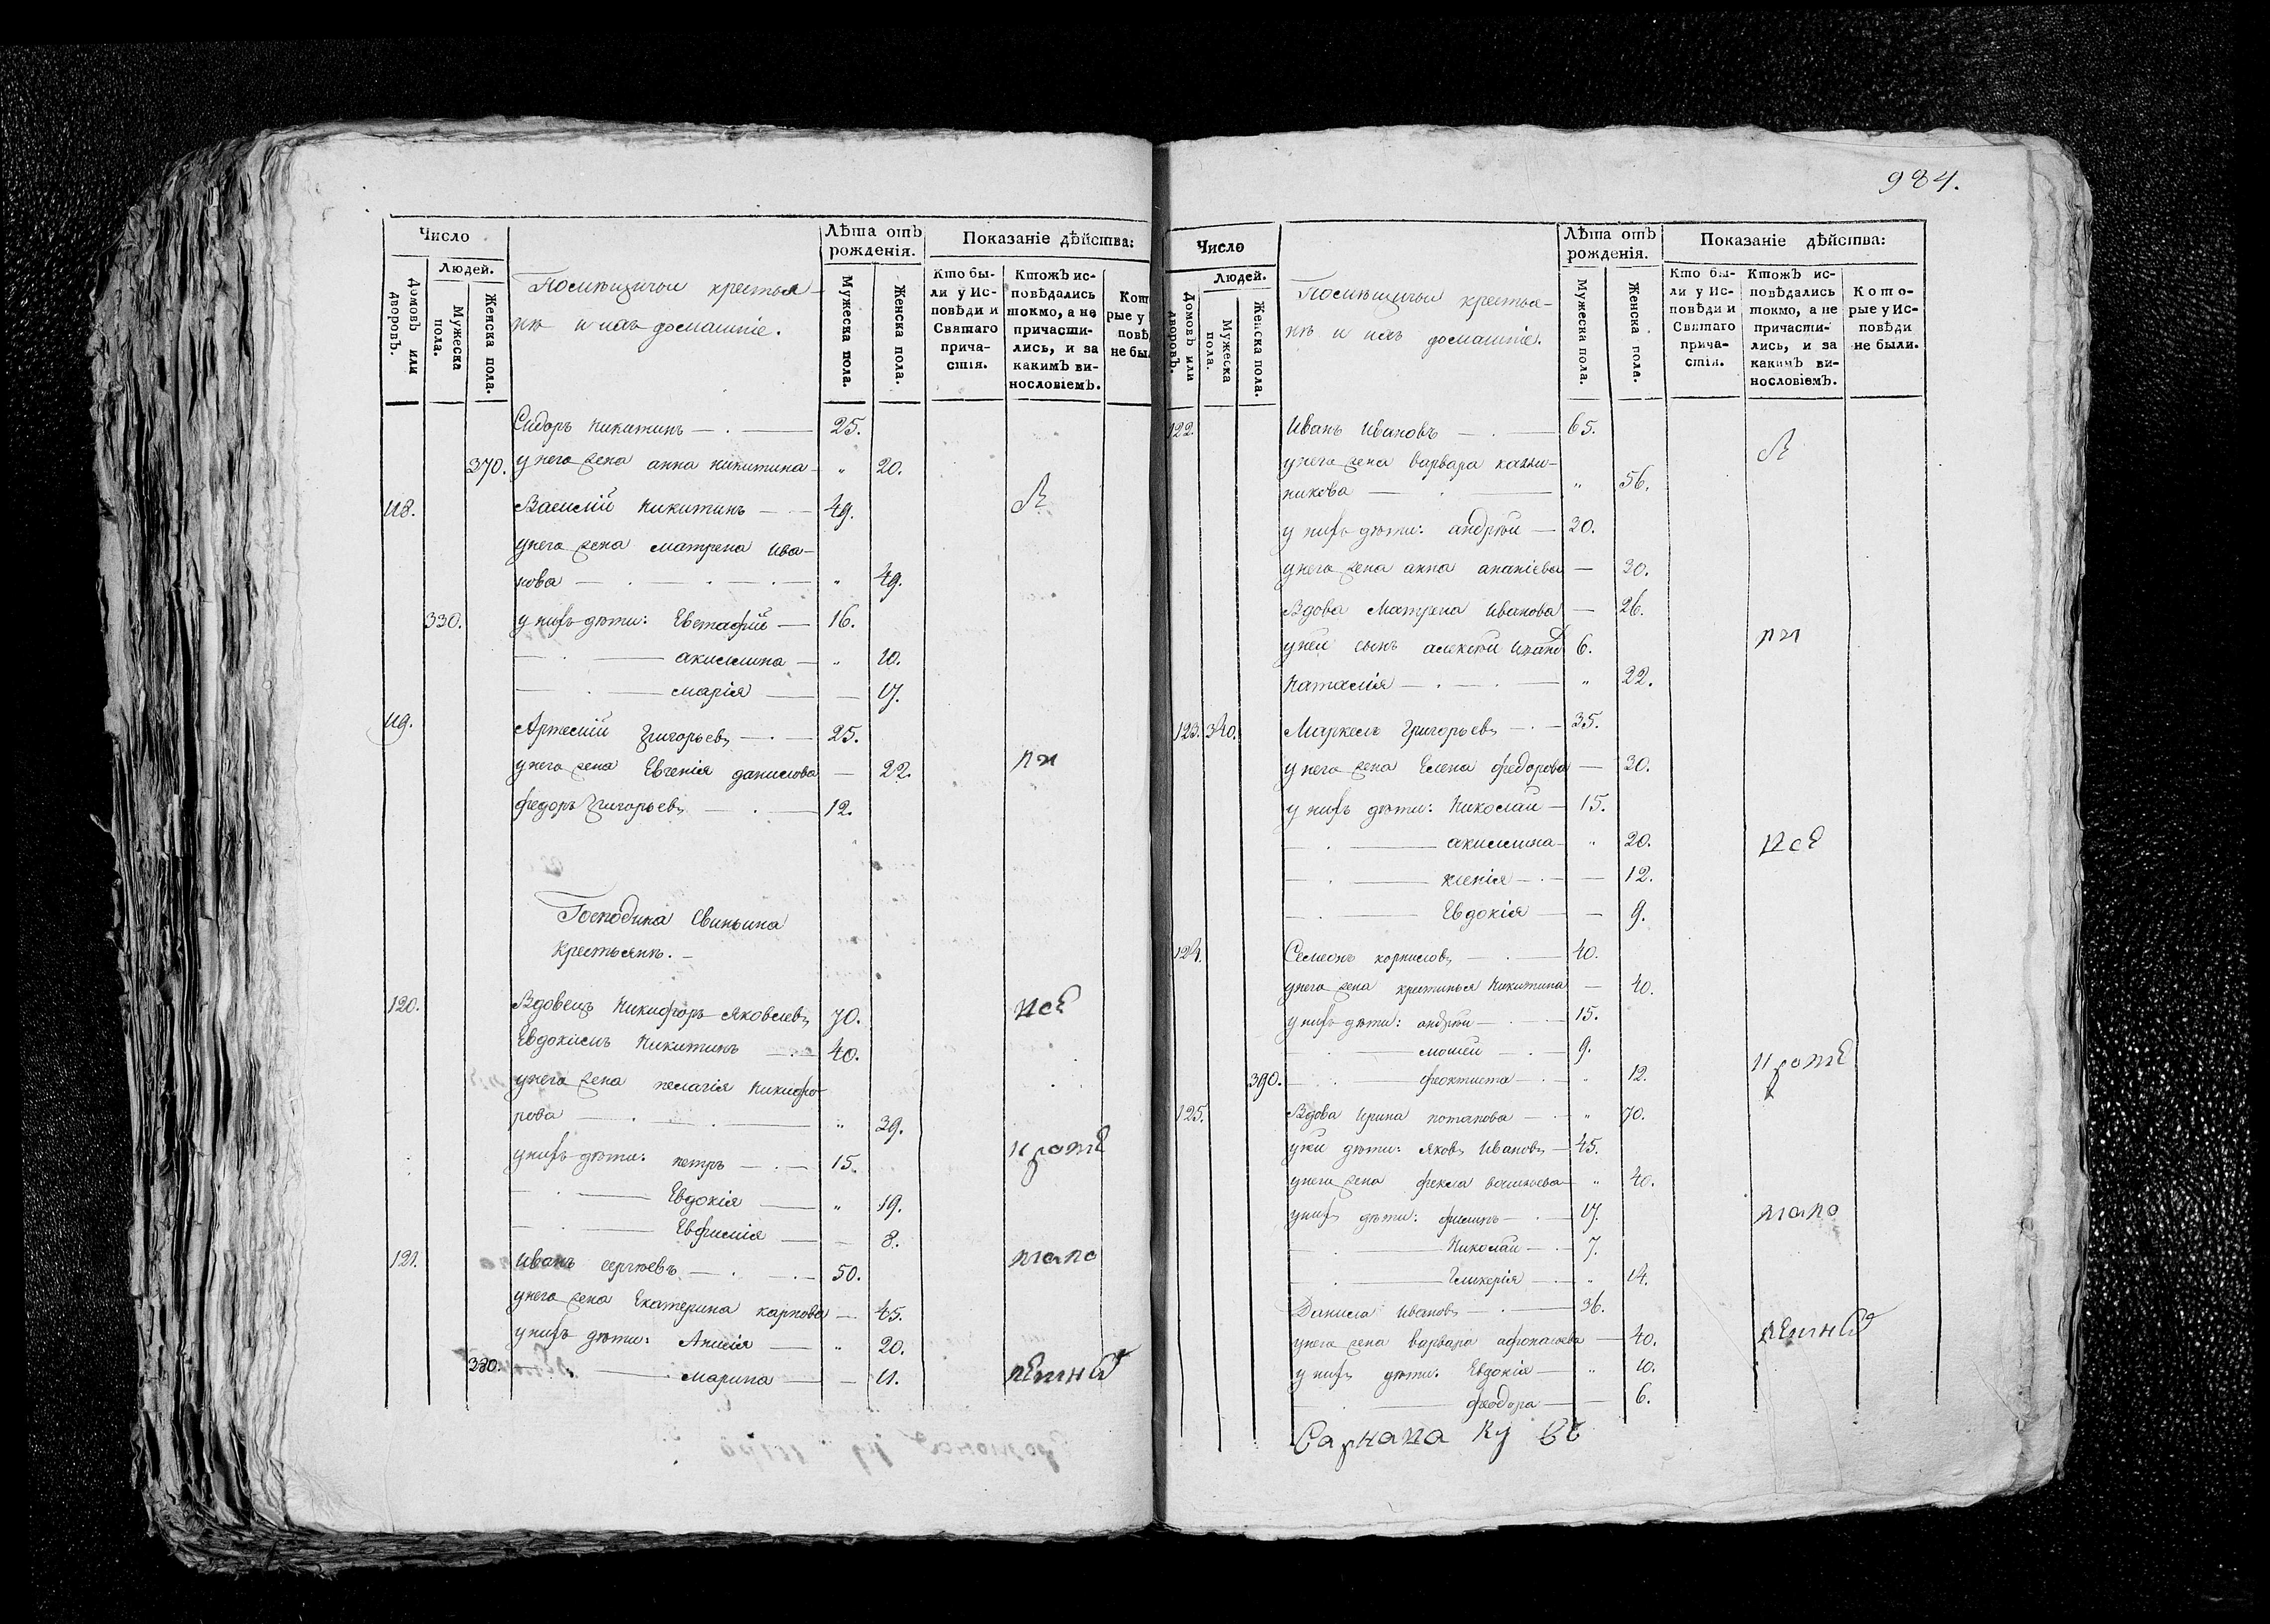 Число
Людей.
Домовъ или дворовъ.
Мужеска пола.
Женска пола.
Помѣщичьи крестья-
нѣ и ихъ домашніе.
Лѣта отъ рожденія.
Мужеска пола.
Женска пола.
Показаніе дѣйства:
Кто бы-
ли у Ис-
повѣди и
Святаго
прича-
стія.
Ктожъ ис-
повѣдались
токмо, а не
причасти-
лись, и за
какимъ ви-
нословіемъ.
Кот
рые у
повѣ
не бы
Сидоръ Никитинъ — 25.
370. у него жена анна никитина — „ 20.
118. Василій Никитинъ — 49.
у него жена матрена ива-
нова — „ 49.
330. у нихъ дѣти: Евстафій — 16.
— акилина — „ 10.
— марія — — 17.
119. Артемій Григорьевъ — 25.
у него жена Евгенія данилова — 22.
федоръ Григорьевъ — 12.
Господина Свиньина
Крестьянѣ. –
120. Вдовецъ Никифоръ Яковлевъ 70.
Евдокимъ Никитинъ — 40.
у него жена пелагія никифо-
рова — „ 39.
у нихъ дѣти: петръ — 15.
— Евдокія — „ 19.
— Евфимія — — 8.
121. Иванъ сергѣевъ — 50.
у него жена Екатерина карпова — 45.
у нихъ дѣти: Анисія — „ 20.
380. — марина — — 11.
984.
Число
Людей.
Домовъ или дворовъ.
Мужеска пола.
Женска пола.
Помѣщичьи крестья-
нѣ и ихъ домашніе.
Лѣта отъ рожденія.
Мужеска пола.
Женска пола.
Показаніе дѣйства:
Кто бы-
ли у Ис-
повѣди и
Святаго
прича-
стія.
Ктожъ ис-
повѣдались
токмо, а не
причасти-
лись, и за
какимъ ви-
нословіемъ.
Кото-
рые у Ис-
повѣди
не были.
122. Иванъ Ивановъ — 65.
у него жена варвара калли-
никова — „ 56.
у нихъ дѣти: андрѣй — 30.
у него жена анна ананіева — 30.
Вдова Матрена Иванова — 26.
у ней сынъ алексѣй 6.
Наталія — „ 22.
123. 340. Маркелъ Григорьевъ — 35.
у него жена Елена федорова — 30.
у нихъ дѣти: Николай — 15.
— акилина — „ 20.
— ксенія — — 12.
— Евдокія — — 9.
124. Семенъ корниловъ — 40.
у него жена крестинья Никитина — 40.
у нихъ дѣти: андрѣй — 15.
— мосѣй — 9.
390. — феоктиста — „ 12.
125. Вдова Ирина потапова — „ 70.
у ней дѣти: Яковъ Ивановъ — 45.
у него жена фекла васильева — „ 40.
у нихъ дѣти: филипъ — 17.
— Николай — 7.
— Гликерія — „ 14.
Данила Ивановъ — 36.
у него жена варвара афонасьева — 40.
у нихъ дѣти: Евдокія — „ 10.
— феодора — — 6.